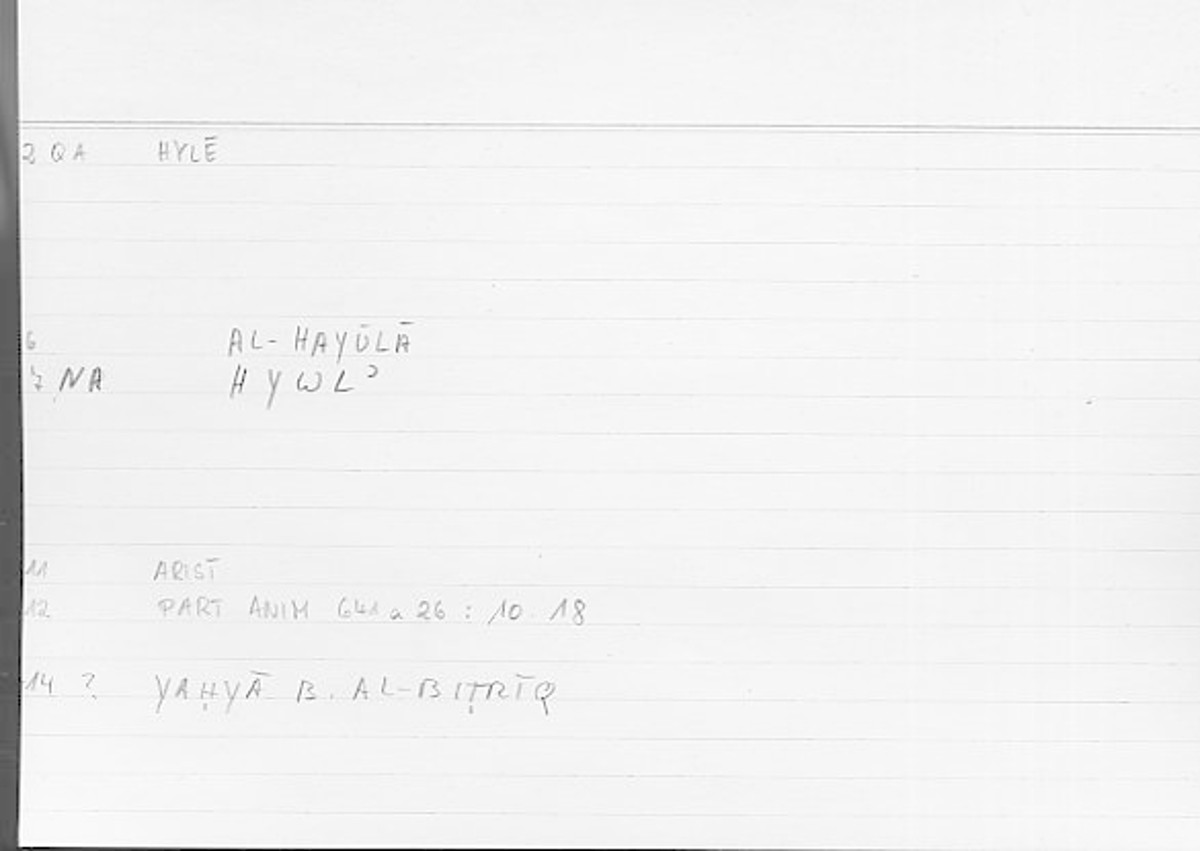 2 QA HYLĒ
6 AL-HAYŪLĀ
7 NA HYWLʾ
11 ARIST
12 PART ANIM 641 a 26 : 10 18
14 ? YAḤYĀ B. AL-BIṬRĪQ